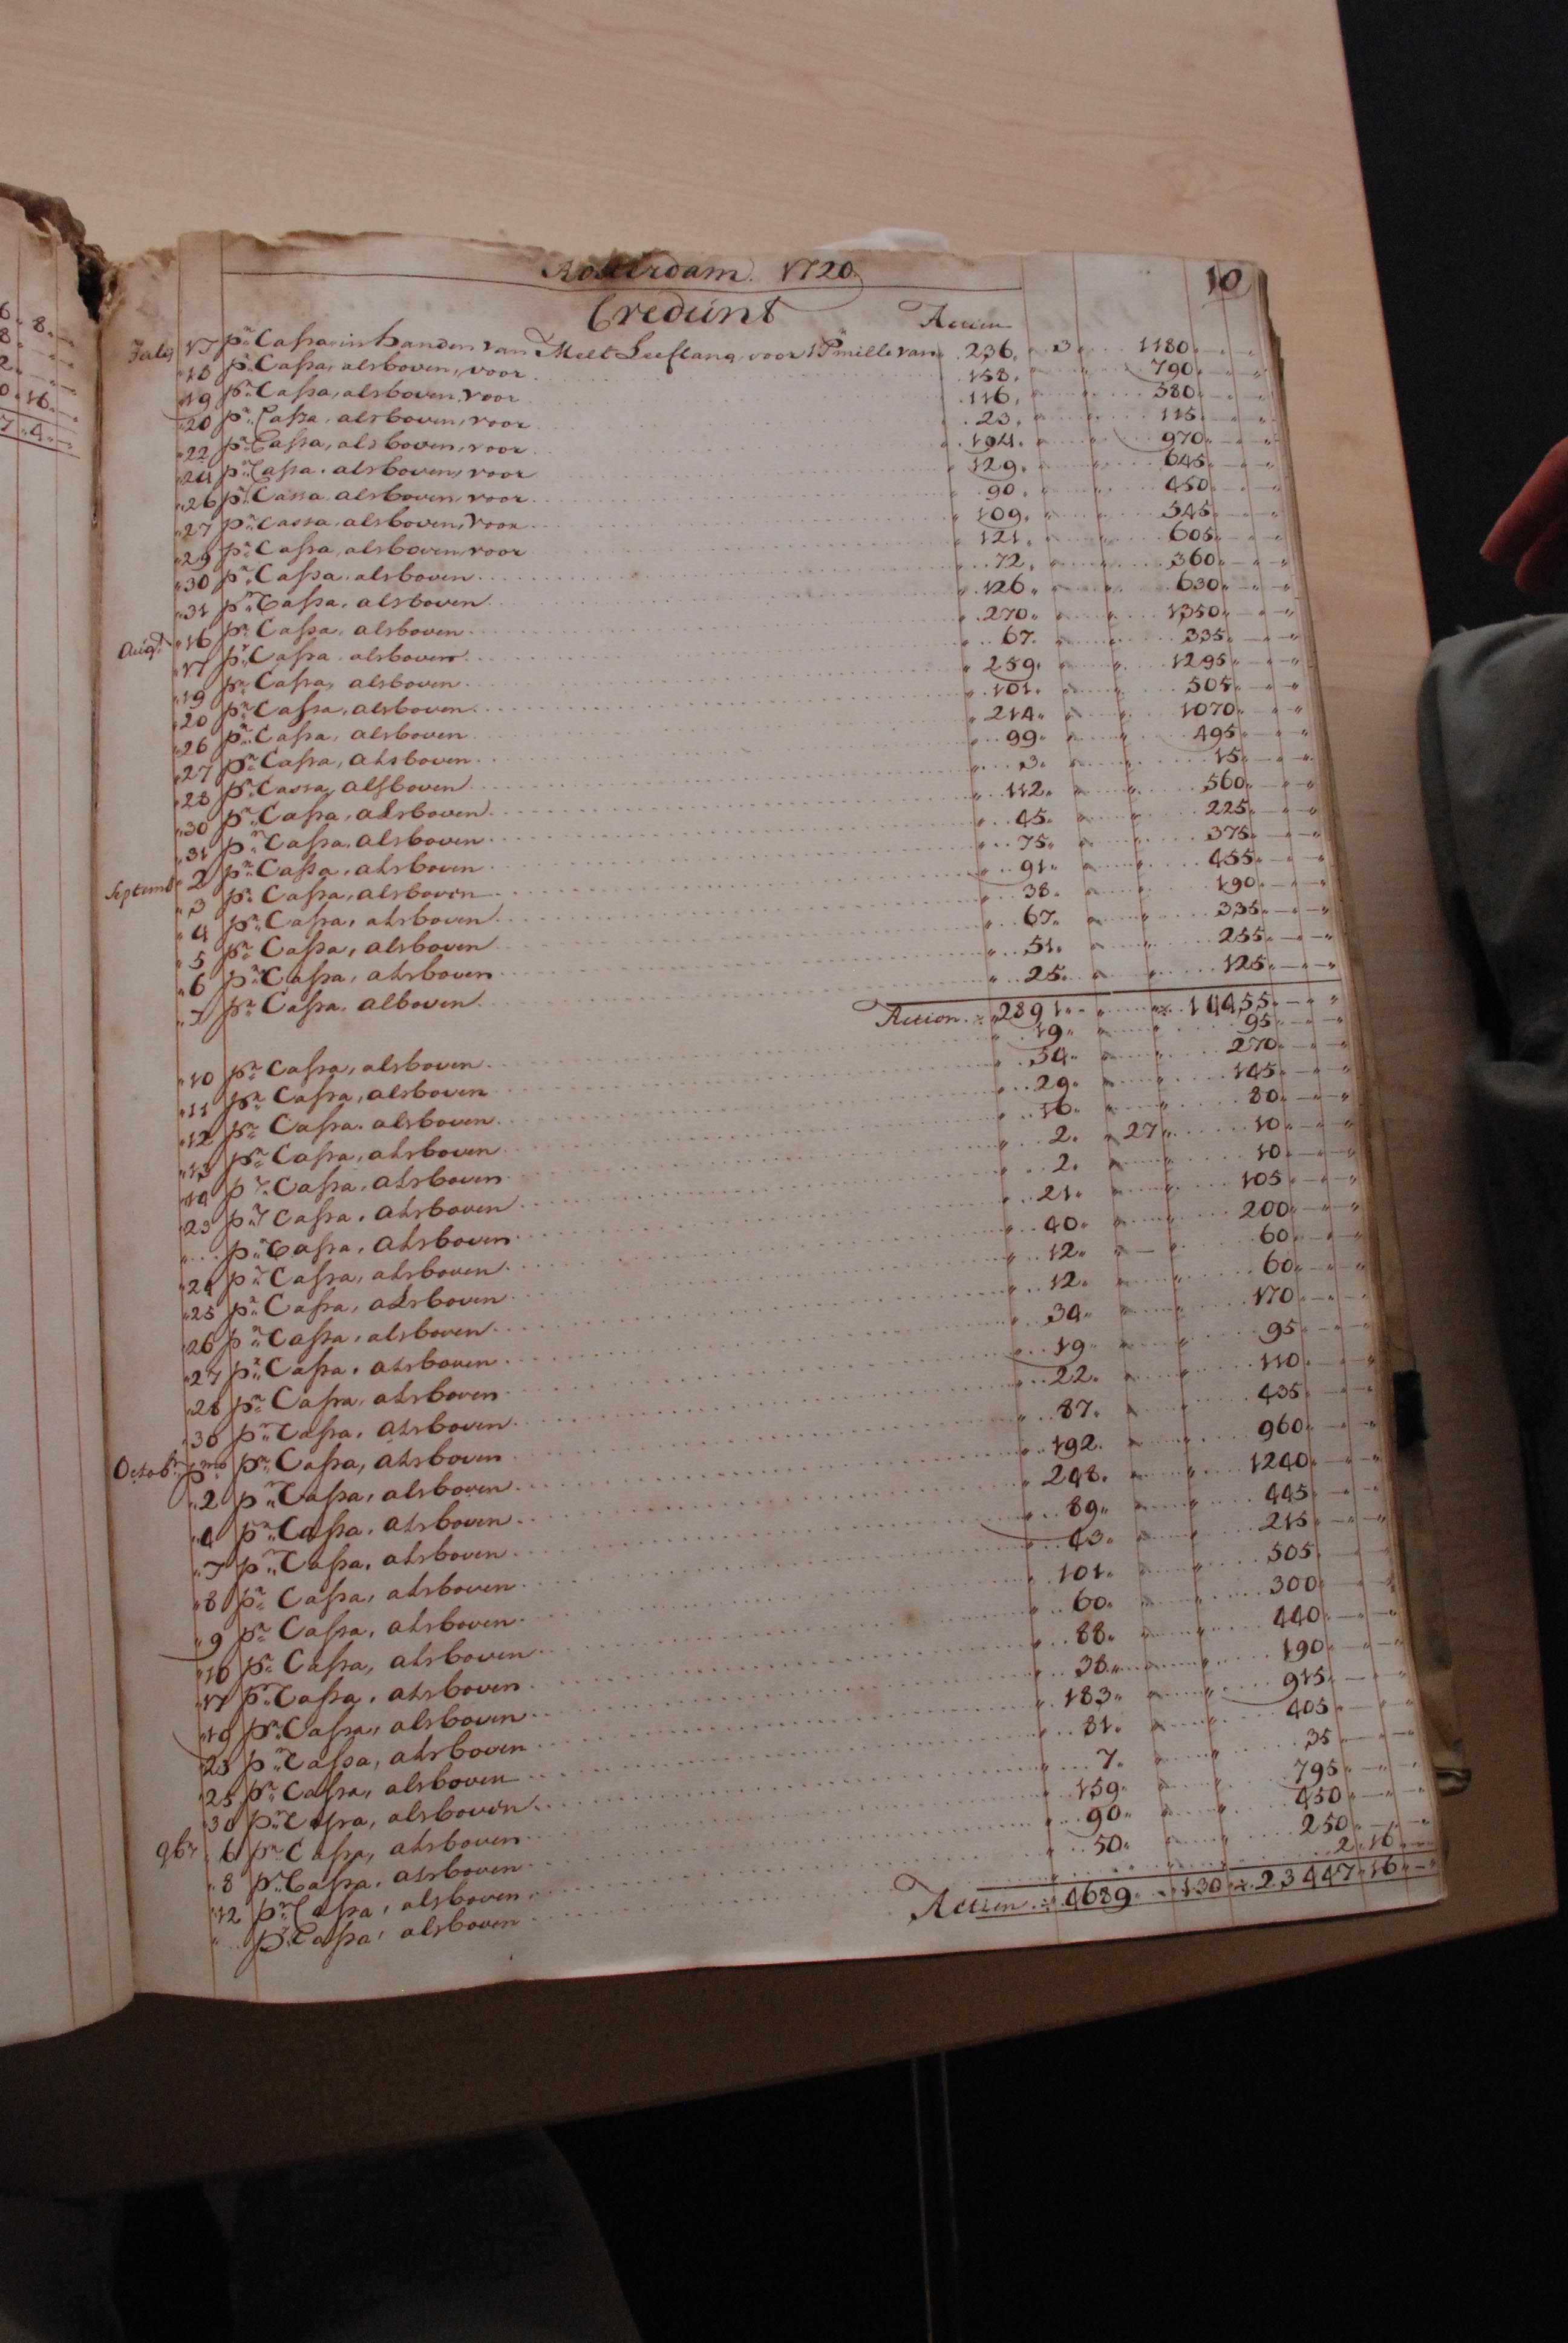 6 „ 8 „ —
8 „ —
2 „ —
0 „ 16 „ —
7 „ 4 „ —
Rotterdam 1720.
10
Credünt
Actien
July 17 pr Cassa in handen van Melt Leeflang, voor 1 P mille van 236. 3 1180 „ — „
„ 18 pr Cassa, alsboven, voor 158. „ 790 „ — „
„ 19 pr Cassa, alsboven, voor 116. „ 580 „ — „
„ 20 pr Cassa, alsboven, voor 23. „ 115 „ — „
„ 22 pr Cassa, alsboven, voor 194. „ 970 „ — „
„ 24 pr Cassa. alsboven, voor 129. „ 645 „ — „
„ 26 pr Cassa. alsboven, voor 90. „ 450 „ — „
„ 27 pr Cassa. alsboven, voor 109. „ 545 „ — „
„ 29 pr Cassa, alsboven, voor 121. „ 605 „ — „
„ 30 pr Cassa. alsboven 72. „ 360 „ — „
„ 31 pr Cassa. alsboven 126. „ 630 „ — „
Augt „ 16 pr Cassa, alsboven 270. „ 1350 „ — „
„ 17 pr Cassa. alsboven 67. „ 335 „ — „
„ 19 pr Cassa, alsboven 259. „ 1295 „ — „
„ 20 pr Cassa, alsboven 101. „ 505 „ — „
„ 26 pr Cassa, alsboven 214. „ 1070 „ — „
„ 27 pr Cassa, alsboven 99. „ 495 „ — „
„ 28 pr Cassa, alsboven 3. „ 15 „ — „
„ 30 pr Cassa, alsboven 112. „ 560 „ — „
„ 31 pr Cassa. alsboven 45. „ 225 „ — „
Septemb „ 2 pr Cassa, alsboven 75. „ 375 „ — „
„ 3 pr Cassa, alsboven 91. „ 455 „ — „
„ 4 pr Cassa, alsboven 38. „ 190 „ — „
„ 5 pr Cassa, alsboven 67. „ 335 „ — „
„ 6 pr Cassa, alsboven 51. „ 255 „ — „
„ 7 pr Cassa. alboven 25. „ 125 „ — „
Actien 2891 „ 14455 „ — „
„ 10 pr Cassa, alsboven 19. „ 95 „ — „
„ 11 pr Cassa, alsboven 54. „ 270 „ — „
„ 12 pr Cassa. alsboven 29. „ 145 „ — „
„ 13 pr Cassa, alsboven 16. „ 80 „ — „
„ 14 pr Cassa. alsboven 2. 27 10 „ — „
„ 23 pr Cassa. alsboven 2. „ 10 „ — „
„ ... pr Cassa, alsboven 21. „ 105 „ — „
„ 24 pr Cassa, alsboven 40. „ 200 „ — „
„ 25 pr Cassa, alsboven 12. „ 60 „ — „
„ 26 pr Cassa, alsboven 12. „ 60 „ — „
„ 27 pr Cassa. alsboven 34. „ 170 „ — „
„ 28 pr Cassa. alsboven 19. „ 95 „ — „
„ 30 pr Cassa. alsboven 22. „ 110 „ — „
Octobr pmo pr Cassa, alsboven 87. „ 435 „ — „
„ 2 pr Cassa, alsboven 192. „ 960 „ — „
„ 4 pr Cassa. alsboven 248. „ 1240 „ — „
„ 7 pr Cassa. alsboven 89. „ 445 „ — „
„ 8 pr Cassa, alsboven 43. „ 215 „ — „
„ 9 pr Cassa, alsboven 101. „ 505 „ — „
„ 10 pr Cassa, alsboven 60. „ 300 „ — „
„ 17 pr Cassa. alsboven 88. „ 440 „ — „
„ 19 pr Cassa, alsboven 38. „ 190 „ — „
„ 23 pr Cassa, alsboven 183. „ 915 „ — „
„ 25 pr Cassa, alsboven 81. „ 405 „ — „
„ 30 pr Cassa, alsboven 7. „ 35 „ — „
9br „ 6 pr Cassa, alsboven 159. „ 795 „ — „
„ 8 pr Cassa. alsboven 90. „ 450 „ — „
„ 12 pr Cassa, alsboven 50. „ 250 „ — „
„ ... pr Cassa, alsboven 2 „ 16 „ —
Actien 4689 „ 130 23447 „ 16 „ —